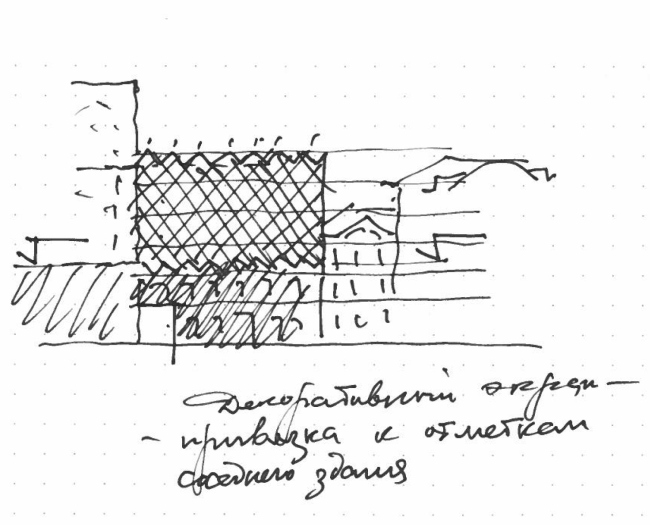 Декоративный экран –
– привязка к отметкам
соседнего здания